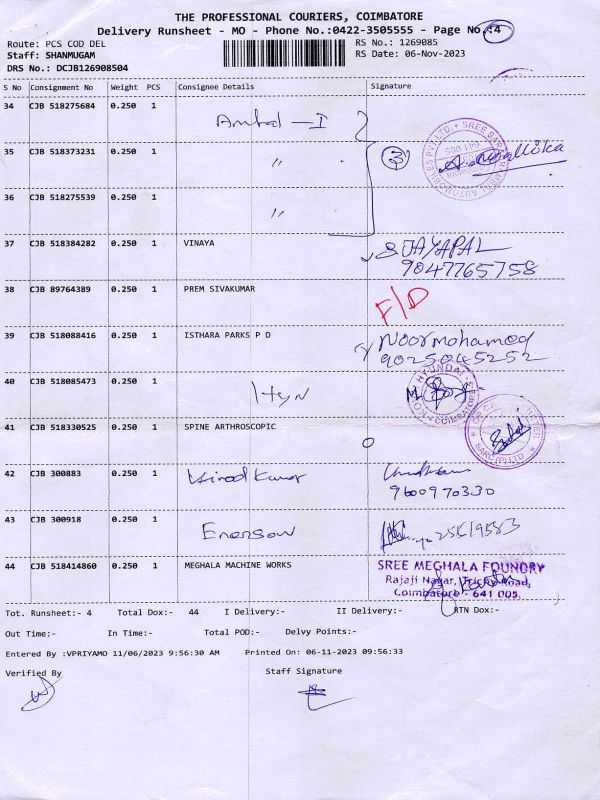 THE PROFESSIONAL COURIERS, COIMBATORE
Delivery Runsheet - MO - Phone No.:0422-3505555 - Page No.:4
Route: PCS COD DEL
RS No.: 1269085
Staff: SHANMUGAM
RS Date: 06-Nov-2023
DRS No.: DCJB126908504
S No Consignment No Weight PCS Consignee Details Signature
34 CJB 518275684 0.250 1
35 CJB 518373231 0.250 1 〃 3
36 CJB 518275539 0.250 1 〃
37 CJB 518384282 0.250 1 VINAYA S JAYAPAL
9047765758
38 CJB 89764389 0.250 1 PREM SIVAKUMAR F/D
39 CJB 518088416 0.250 1 ISTHARA PARKS P D Noormohamed
9025045252
40 CJB 518085473 0.250 1 HYUNDAI
COIMBATORE
41 CJB 518330525 0.250 1 SPINE ARTHROSCOPIC
42 CJB 300883 0.250 1 Vinod Kumar
9600970330
43 CJB 300918 0.250 1
44 CJB 518414860 0.250 1 MEGHALA MACHINE WORKS SREE MEGHALA FOUNDRY
Rajaji Nagar, Trichy Road,
Coimbatore - 641 005.
Tot. Runsheet:- 4 Total Dox:- 44 I Delivery:- II Delivery:- RTN Dox:-
Out Time:- In Time:- Total POD:- Delvy Points:-
Entered By :VPRIYAMO 11/06/2023 9:56:30 AM Printed On: 06-11-2023 09:56:33
Verified By Staff Signature